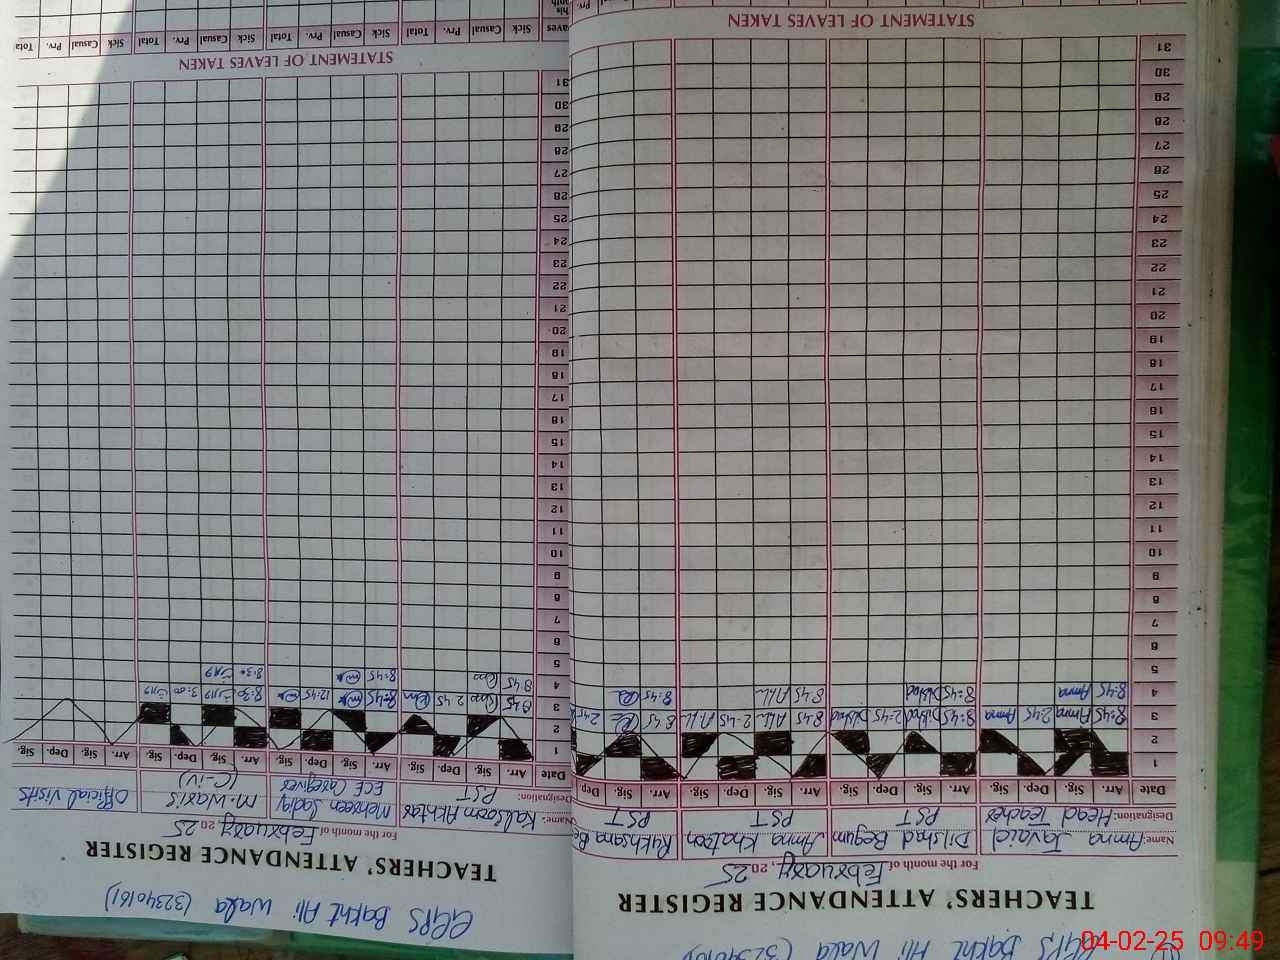 GGPS Bakht Ali Wala (32340161)
TEACHERS' ATTENDANCE REGISTER
For the month of February, 2025
Name: Amna Javaid Dilshad Begum Amna Khatoon Rukhsana Be
Designation: Head Teacher PST PST PST
Date Arr. Sig. Dep. Sig. Arr. Sig. Dep. Sig. Arr. Sig. Dep. Sig. Arr. Sig. Dep.
1
2
3 8:45 Amna 2:45 Amna 8:45 Dilshad 2:45 Dilshad 8:45 2:45 8:45 2:45
4 8:45 Amna 8:45 Dilshad 8:45 8:45
5
6
7
8
9
10
11
12
13
14
15
16
17
18
19
20
21
22
23
24
25
26
27
28
29
30
31
STATEMENT OF LEAVES TAKEN
GGPS Bakht Ali Wala (32340161)
TEACHERS' ATTENDANCE REGISTER
For the month of February 2025
Name: Kalsoom Akhtar Mehreen Sadiq M. Waris Official Visits
Designation: PST ECE Caregiver (C.iv)
Date Arr. Sig. Dep. Sig. Arr. Sig. Dep. Sig. Arr. Sig. Dep. Sig. Arr. Sig. Dep. Sig.
1
2
3 8:45 2:45 8:45 12:45 8:30 3:00
4 8:45 8:45 8:30
5
6
7
8
9
10
11
12
13
14
15
16
17
18
19
20
21
22
23
24
25
26
27
28
29
30
31
STATEMENT OF LEAVES TAKEN
Sick Casual Prv. Total Sick Casual Prv. Total Sick Casual Prv. Total Sick Casual Prv.
04-02-25 09:49